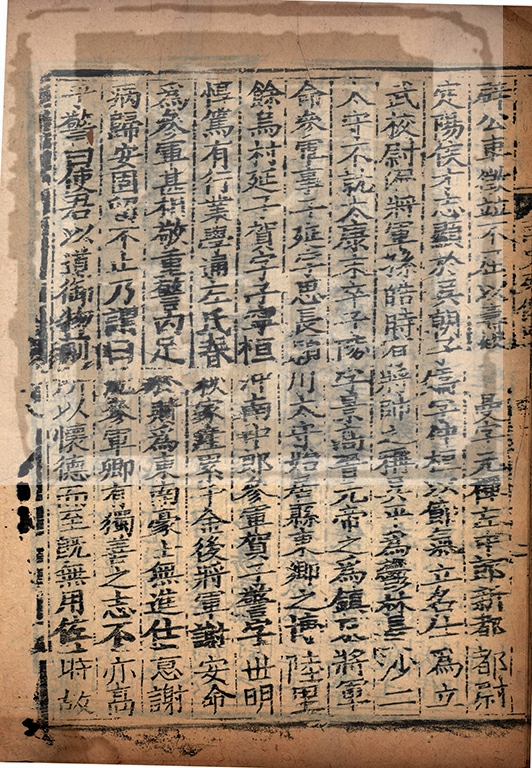 辟公車徵並不屈以壽終　曼字元禪左中郎新都都尉
定陽侯才志顯於吳朝子矯字仲桓以節氣立名仕為立
武校尉偏將軍孫皓時有將帥之稱吳平為鬱林長沙二
太守不就太康末卒子陵字景高晉元帝之為鎮東將軍
命參軍事子延字思長潁川太守始居縣東鄉之博陸里
餘烏村延子賀字子寧桓沖南中郎參軍賀子警字世明
惇篤有行業學通左氏春秋家產累千金後將軍謝安命
為參軍甚相敬重警內足於財為東南豪士無進仕意謝
病歸安固留不止乃謂曰沈參軍卿有獨善之志不亦高
乎警曰使君以道御物前所以懷德而至既無用佐時故